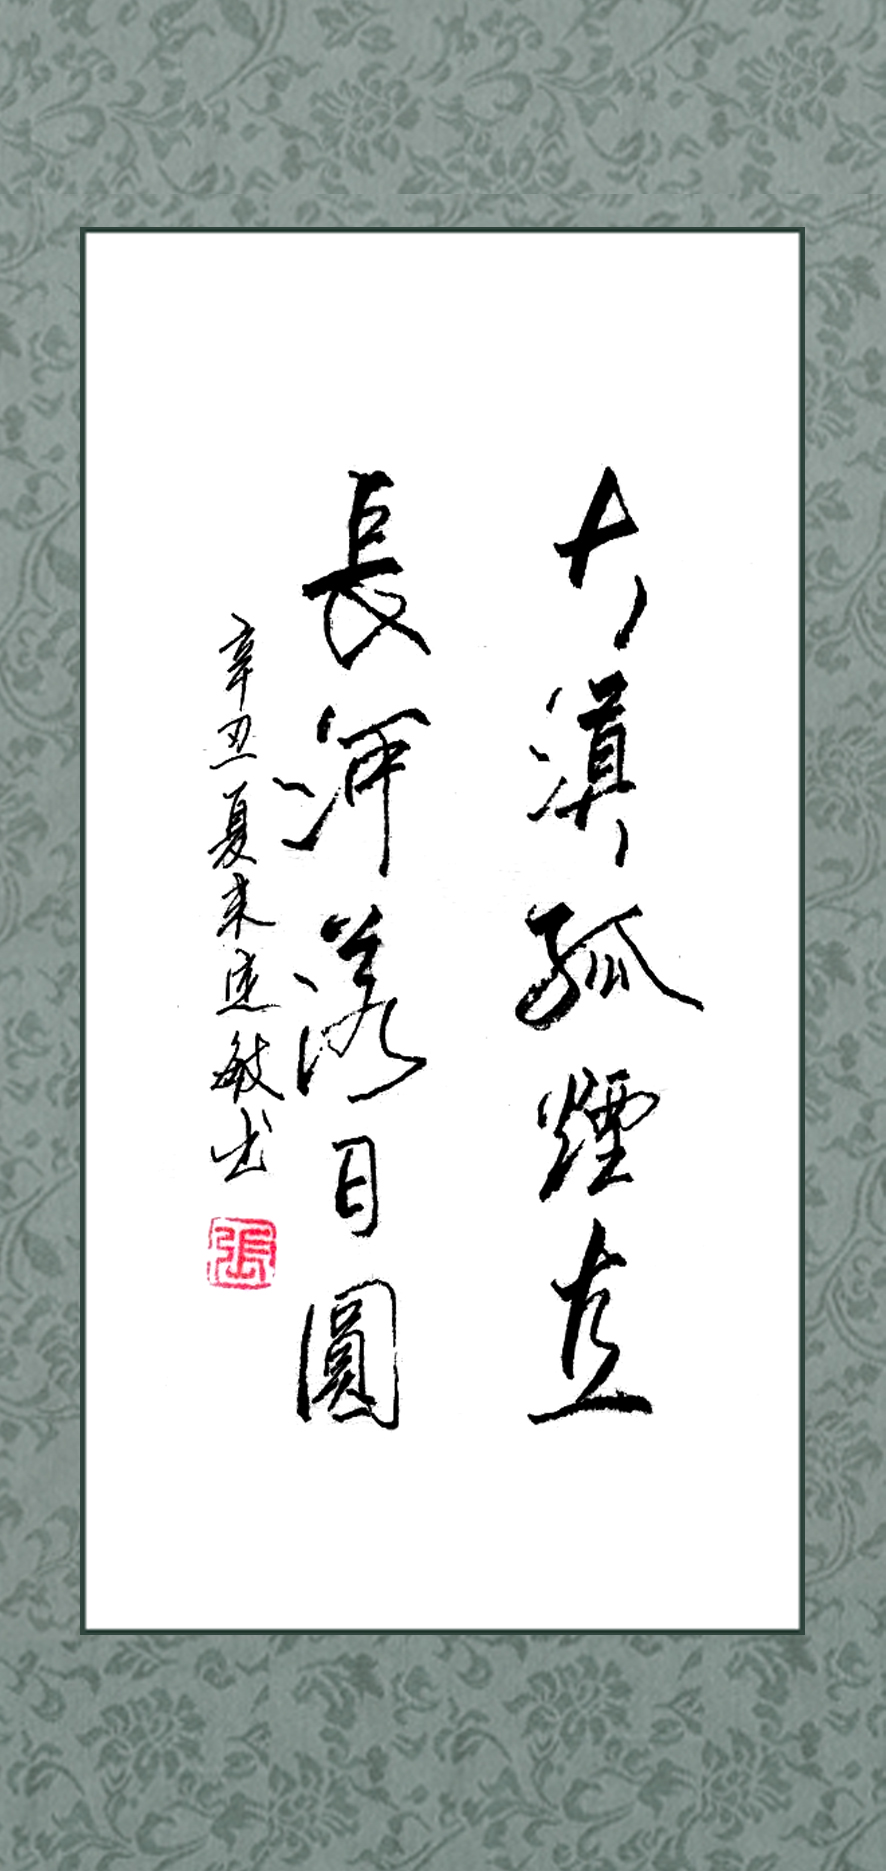 大漠孤煙直
長河落日圓
辛丑夏末敏书
張